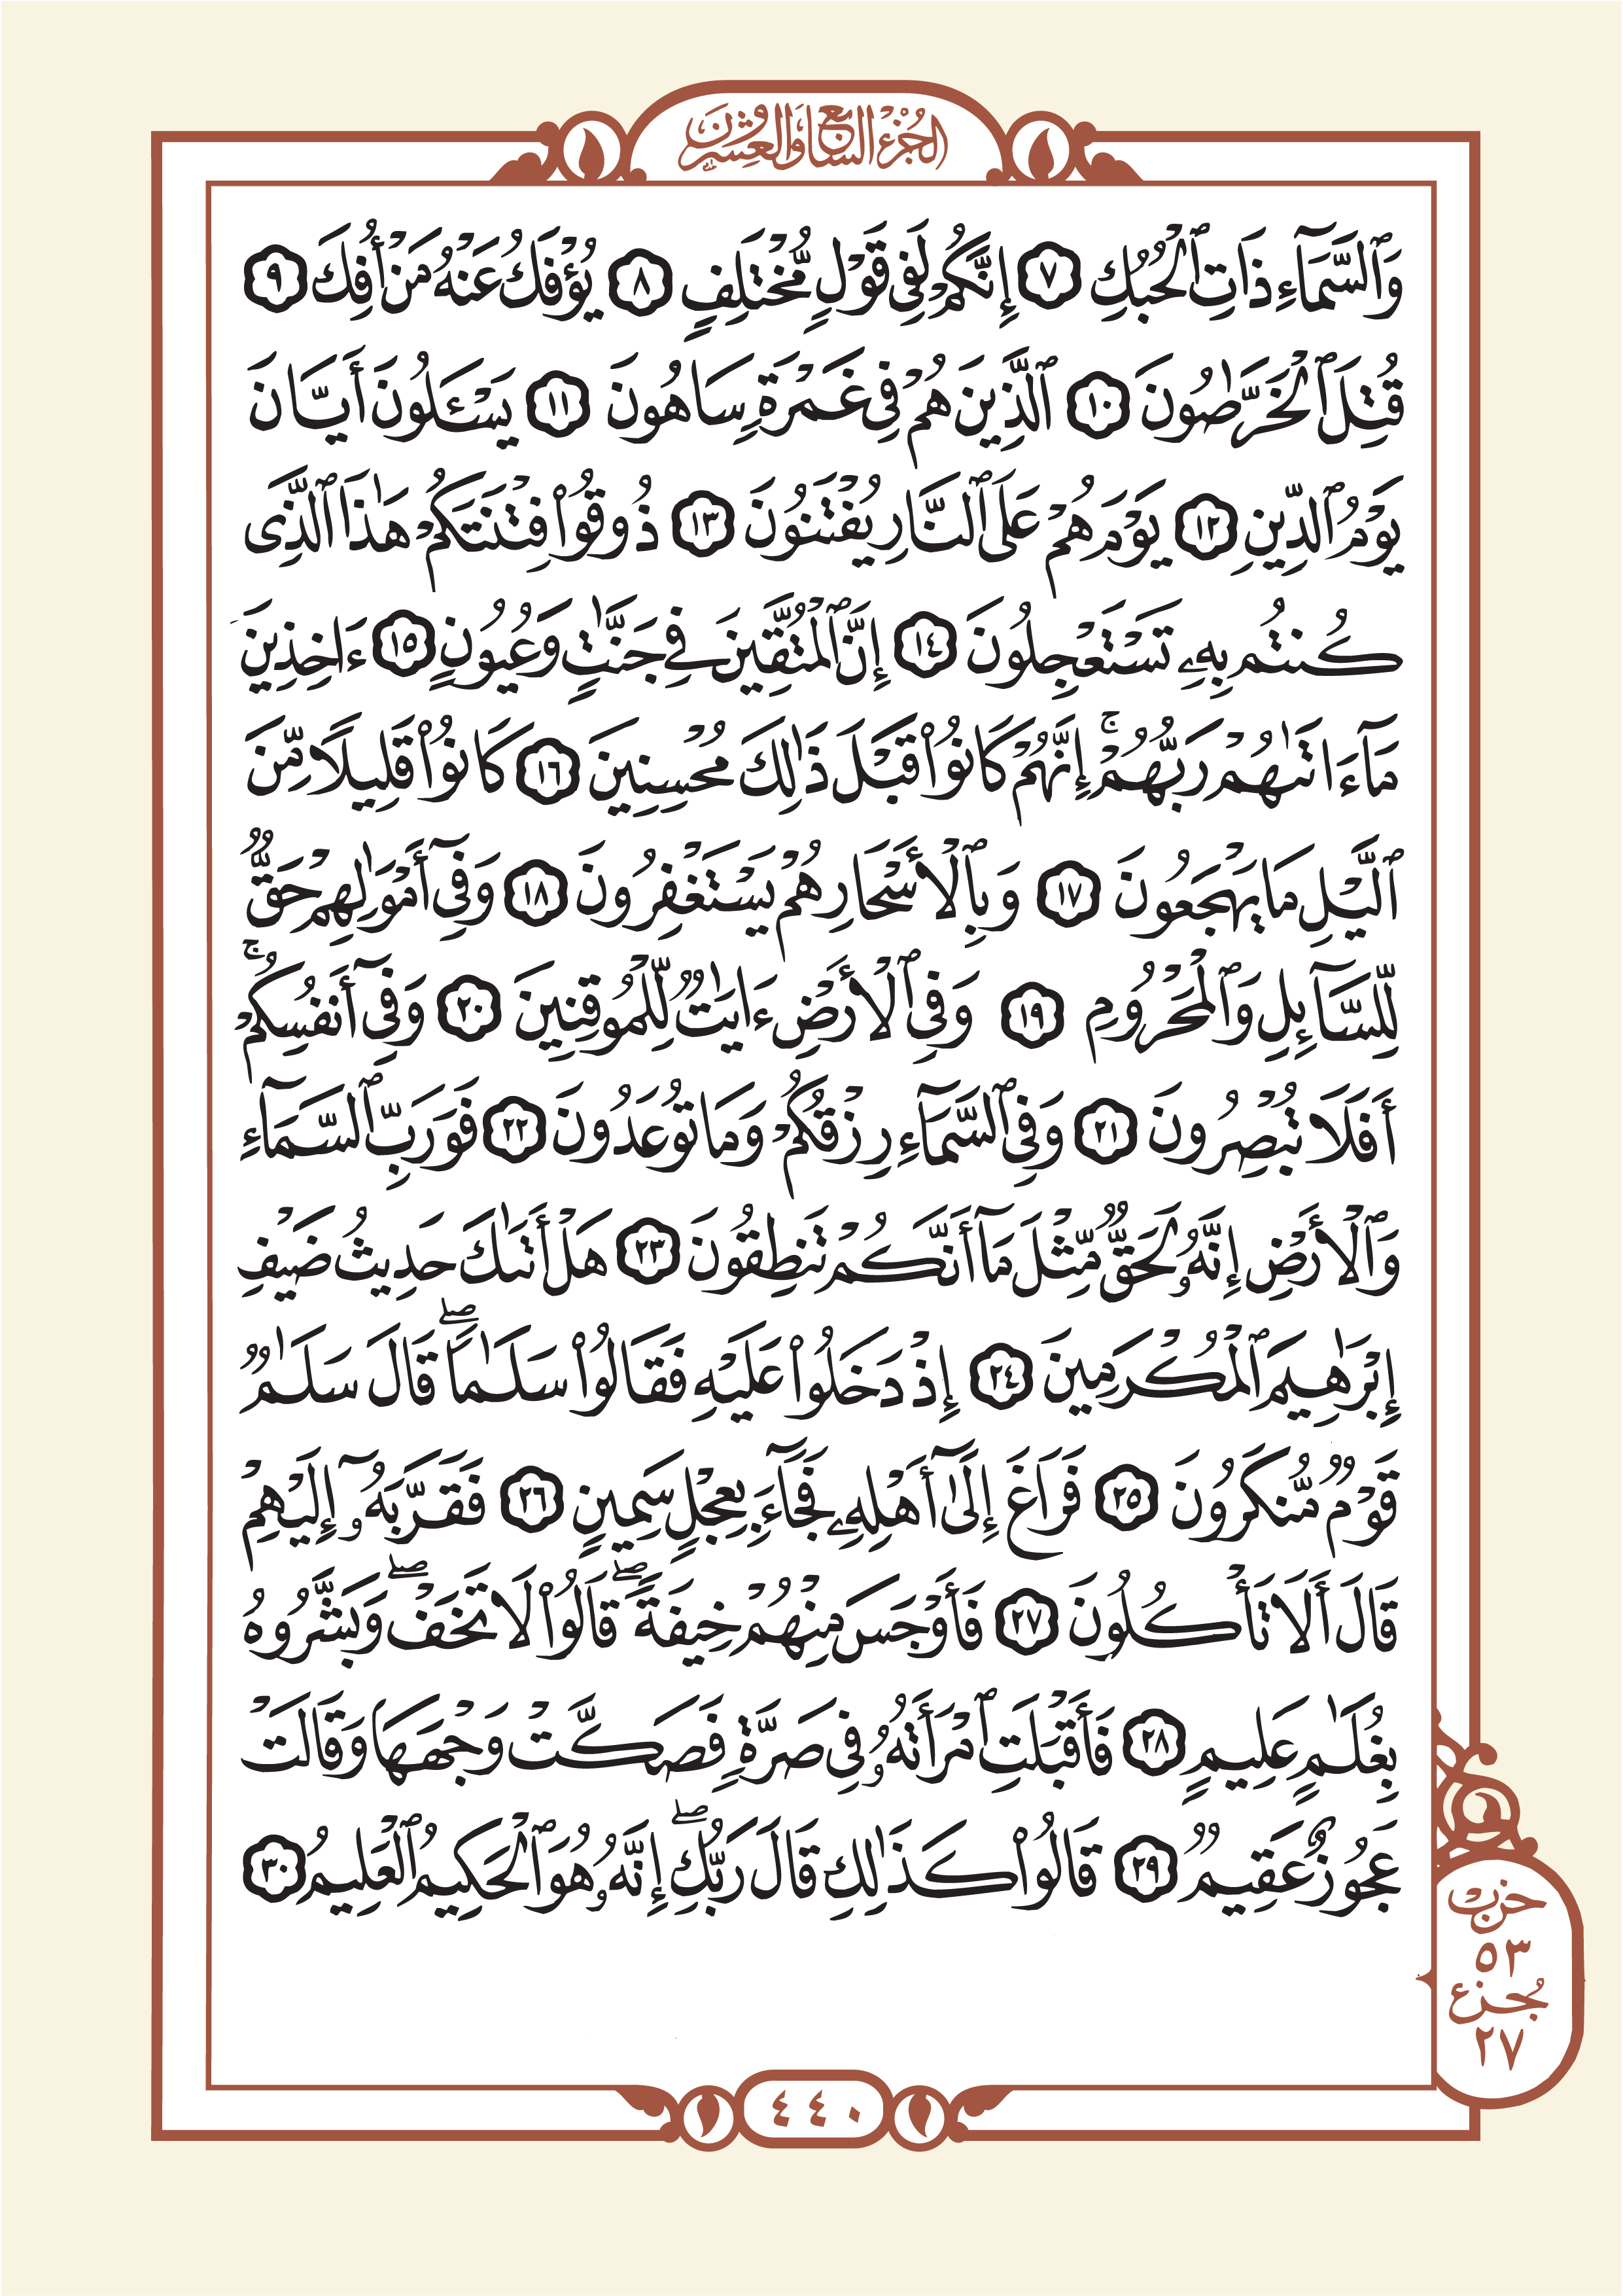 الجزء السابع والعشرون
وَٱلسَّمَآءِ ذَاتِ ٱلْحُبُكِ ٧ إِنَّكُمْ لَفِى قَوْلٍ مُّخْتَلِفٍ ٨ يُؤْفَكُ عَنْهُ مَنْ أُفِكَ ٩
قُتِلَ ٱلْخَرَّٰصُونَ ١٠ ٱلَّذِينَ هُمْ فِى غَمْرَةٍ سَاهُونَ ١١ يَسْـَٔلُونَ أَيَّانَ
يَوْمُ ٱلدِّينِ ١٢ يَوْمَ هُمْ عَلَى ٱلنَّارِ يُفْتَنُونَ ١٣ ذُوقُوا۟ فِتْنَتَكُمْ هَٰذَا ٱلَّذِى
كُنتُم بِهِۦ تَسْتَعْجِلُونَ ١٤ إِنَّ ٱلْمُتَّقِينَ فِى جَنَّٰتٍ وَعُيُونٍ ١٥ ءَاخِذِينَ
مَآ ءَاتَىٰهُمْ رَبُّهُمْ ۚ إِنَّهُمْ كَانُوا۟ قَبْلَ ذَٰلِكَ مُحْسِنِينَ ١٦ كَانُوا۟ قَلِيلًا مِّنَ
ٱلَّيْلِ مَا يَهْجَعُونَ ١٧ وَبِٱلْأَسْحَارِ هُمْ يَسْتَغْفِرُونَ ١٨ وَفِىٓ أَمْوَٰلِهِمْ حَقٌّ
لِّلسَّآئِلِ وَٱلْمَحْرُومِ ١٩ وَفِى ٱلْأَرْضِ ءَايَٰتٌ لِّلْمُوقِنِينَ ٢٠ وَفِىٓ أَنفُسِكُمْ ۚ
أَفَلَا تُبْصِرُونَ ٢١ وَفِى ٱلسَّمَآءِ رِزْقُكُمْ وَمَا تُوعَدُونَ ٢٢ فَوَرَبِّ ٱلسَّمَآءِ
وَٱلْأَرْضِ إِنَّهُۥ لَحَقٌّ مِّثْلَ مَآ أَنَّكُمْ تَنطِقُونَ ٢٣ هَلْ أَتَىٰكَ حَدِيثُ ضَيْفِ
إِبْرَٰهِيمَ ٱلْمُكْرَمِينَ ٢٤ إِذْ دَخَلُوا۟ عَلَيْهِ فَقَالُوا۟ سَلَٰمًا ۖ قَالَ سَلَٰمٌ
قَوْمٌ مُّنكَرُونَ ٢٥ فَرَاغَ إِلَىٰٓ أَهْلِهِۦ فَجَآءَ بِعِجْلٍ سَمِينٍ ٢٦ فَقَرَّبَهُۥٓ إِلَيْهِمْ
قَالَ أَلَا تَأْكُلُونَ ٢٧ فَأَوْجَسَ مِنْهُمْ خِيفَةً ۖ قَالُوا۟ لَا تَخَفْ ۖ وَبَشَّرُوهُ
بِغُلَٰمٍ عَلِيمٍ ٢٨ فَأَقْبَلَتِ ٱمْرَأَتُهُۥ فِى صَرَّةٍ فَصَكَّتْ وَجْهَهَا وَقَالَتْ
عَجُوزٌ عَقِيمٌ ٢٩ قَالُوا۟ كَذَٰلِكِ قَالَ رَبُّكِ ۖ إِنَّهُۥ هُوَ ٱلْحَكِيمُ ٱلْعَلِيمُ ٣٠
حزب
٥٣
جزء
٢٧
٤٤٠